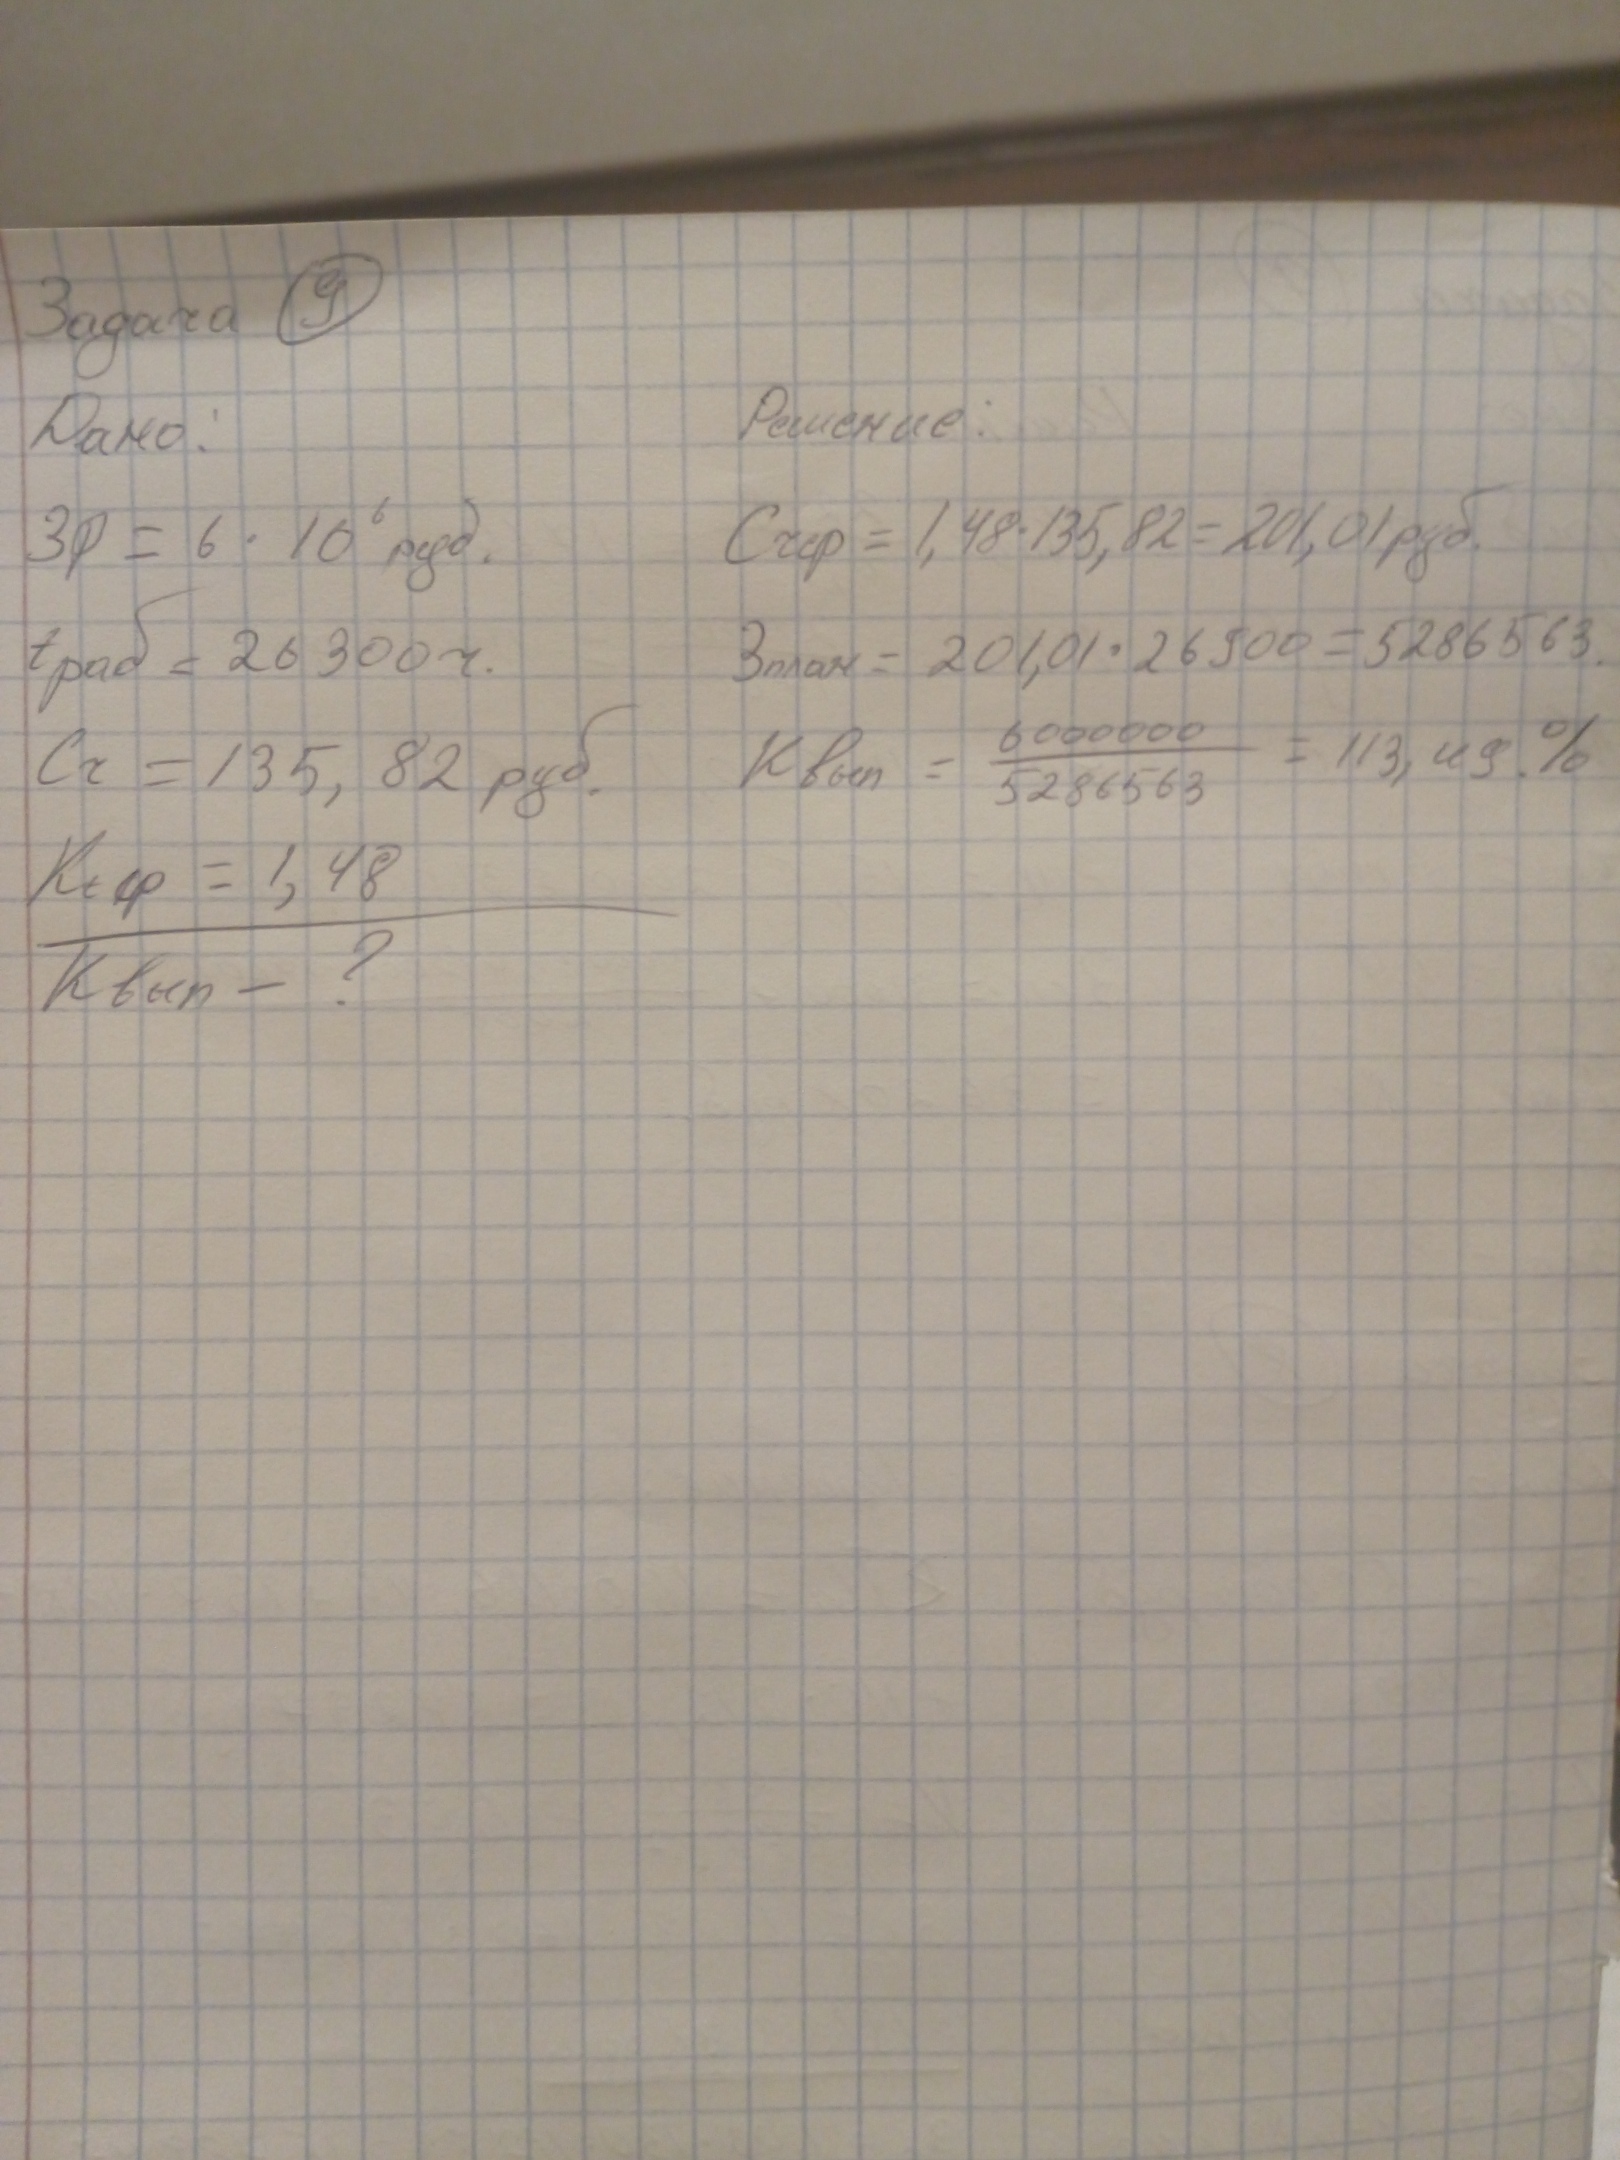 Задача 9
Дано:
ЗР = 6 · 10⁶ руб.
tраб = 26300 ч.
Сч = 135, 82 руб.
Ktср = 1, 48
Квып - ?
Решение:
Счср = 1,48·135,82 = 201,01 руб.
Зплан = 201,01 · 26300 = 5286563.
Квып = 6000000 / 5286563 = 113, 49 %